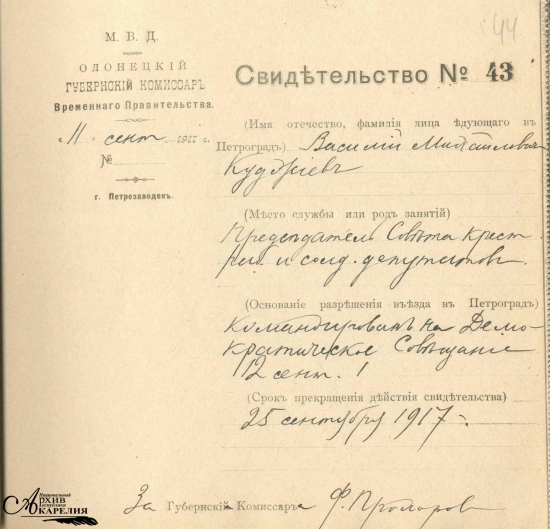 44
М. В. Д.
ОЛОНЕЦКІЙ
ГУБЕРНСКІЙ КОМИССАРЪ
Временнаго Правительства.
„11 сент. 191 г.
№
г. Петрозаводскъ.
Свидѣтельство № 43
(Имя отчество, фамилія лица ѣдующаго въ
Петроградъ) Василій Михайлович
Кудріевъ
(Мѣсто службы или родъ занятій)
Председатель Совѣта Крест.
раб. и солд. депутатов.
(Основаніе разрѣшенія въѣзда въ Петроградъ)
Командированъ на Демо-
кратическое Совѣщаніе
12 сент.
(Срокъ прекращенія дѣйствія свидѣтельства)
25 сентября 1917 г.
За Губернскій Комиссаръ а Ф. Прохоров
Национальный
АРХИВ
Республики
КАРЕЛИЯ